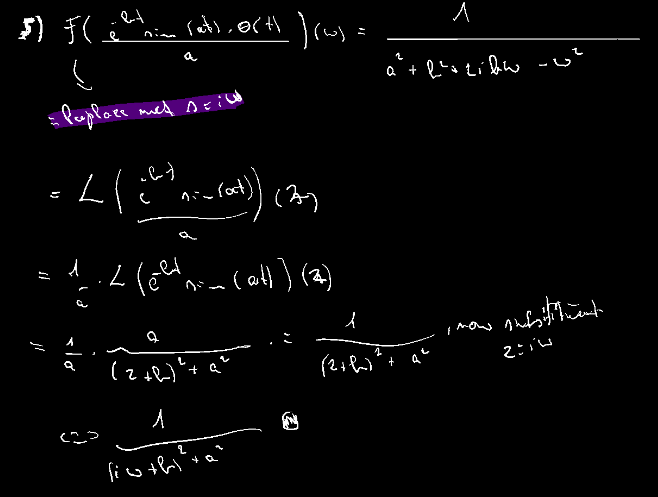 5) F( e^{-bt} sin(at)·Θ(t) / a )(ω) = 1 / (a² + b² + 2ibω - ω²)
= Laplace met s=iω
= L( e^{-bt} sin(at) / a )(z)
= 1/a · L(e^{-bt} sin(at))(z)
= 1/a · a / ((z+b)² + a²) = 1 / ((z+b)² + a²), now
z=iω
<=> 1 / ((iω+b)² + a²)